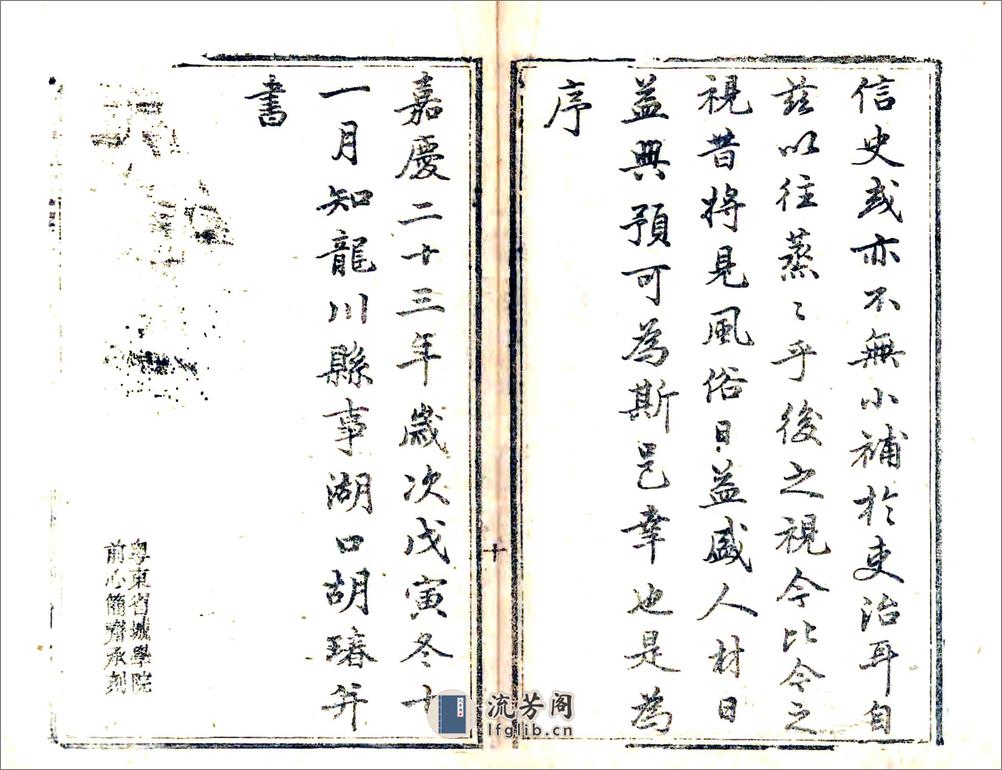 信史或亦不無小補於吏治耳自
茲以往蒸〻乎後之視今比今之
視昔將見風俗日益盛人材日
益興預可為斯邑幸也是為
序
嘉慶二十三年歲次戊寅冬十
一月知龍川縣事湖口胡瑃并
書
粵東省城學院
前心簡齋承刻
十
流芳阁
lfglib.cn